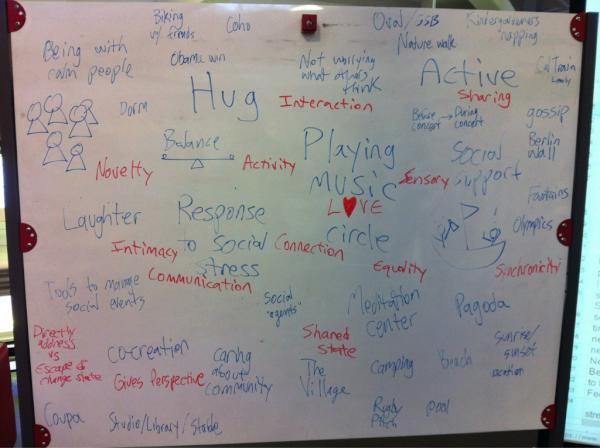 Biking
w/ friends
Coho
Oval/GSB
Kindergarteners
napping
Being with
calm people
Obama win
Not worrying
what others
think
Nature walk
Active
CalTrain
Lonely
Dorm
Hug
Interaction
Sharing
Before
concert → During
concert
gossip
Balance
Playing
music
Berlin
Wall
Novelty
Activity
Sensory
Social
support
LOVE
Fountains
Laughter
Response
to Social
stress
circle
Olympics
Intimacy
Connection
Equality
Synchronicity
Communication
Tools to manage
social events
Social
"agents"
Meditation
center
Pagoda
Directly
address
vs
Escape or
change state
Shared
state
co-creation
Caring
about
community
The
Village
Camping
Beach
sunrise/
sunset
location
Gives Perspective
Coupa
Studio/Library/Stable
Rugby
Pitch
pool